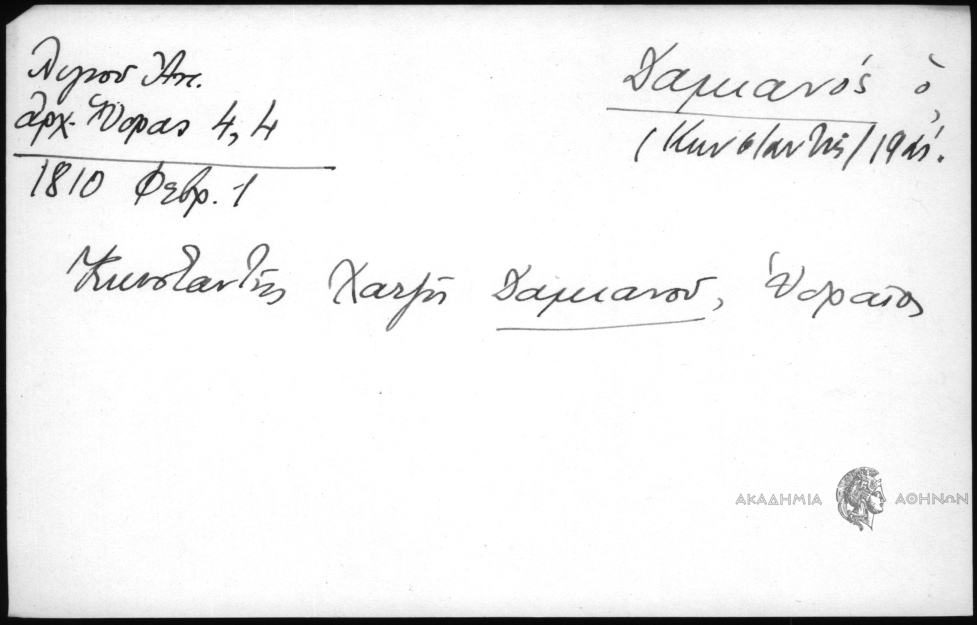 Λιγνού Ἀντ.
ἀρχ. Ὕδρας 4, 4
1810 Φεβρ. 1
Δαμιανός ὁ,
(Κωνσταντής)
Κωνσταντής Χατζῆ Δαμιανοῦ, Ὑδραῖος
ΑΚΑΔΗΜΙΑ ΑΘΗΝΩΝ